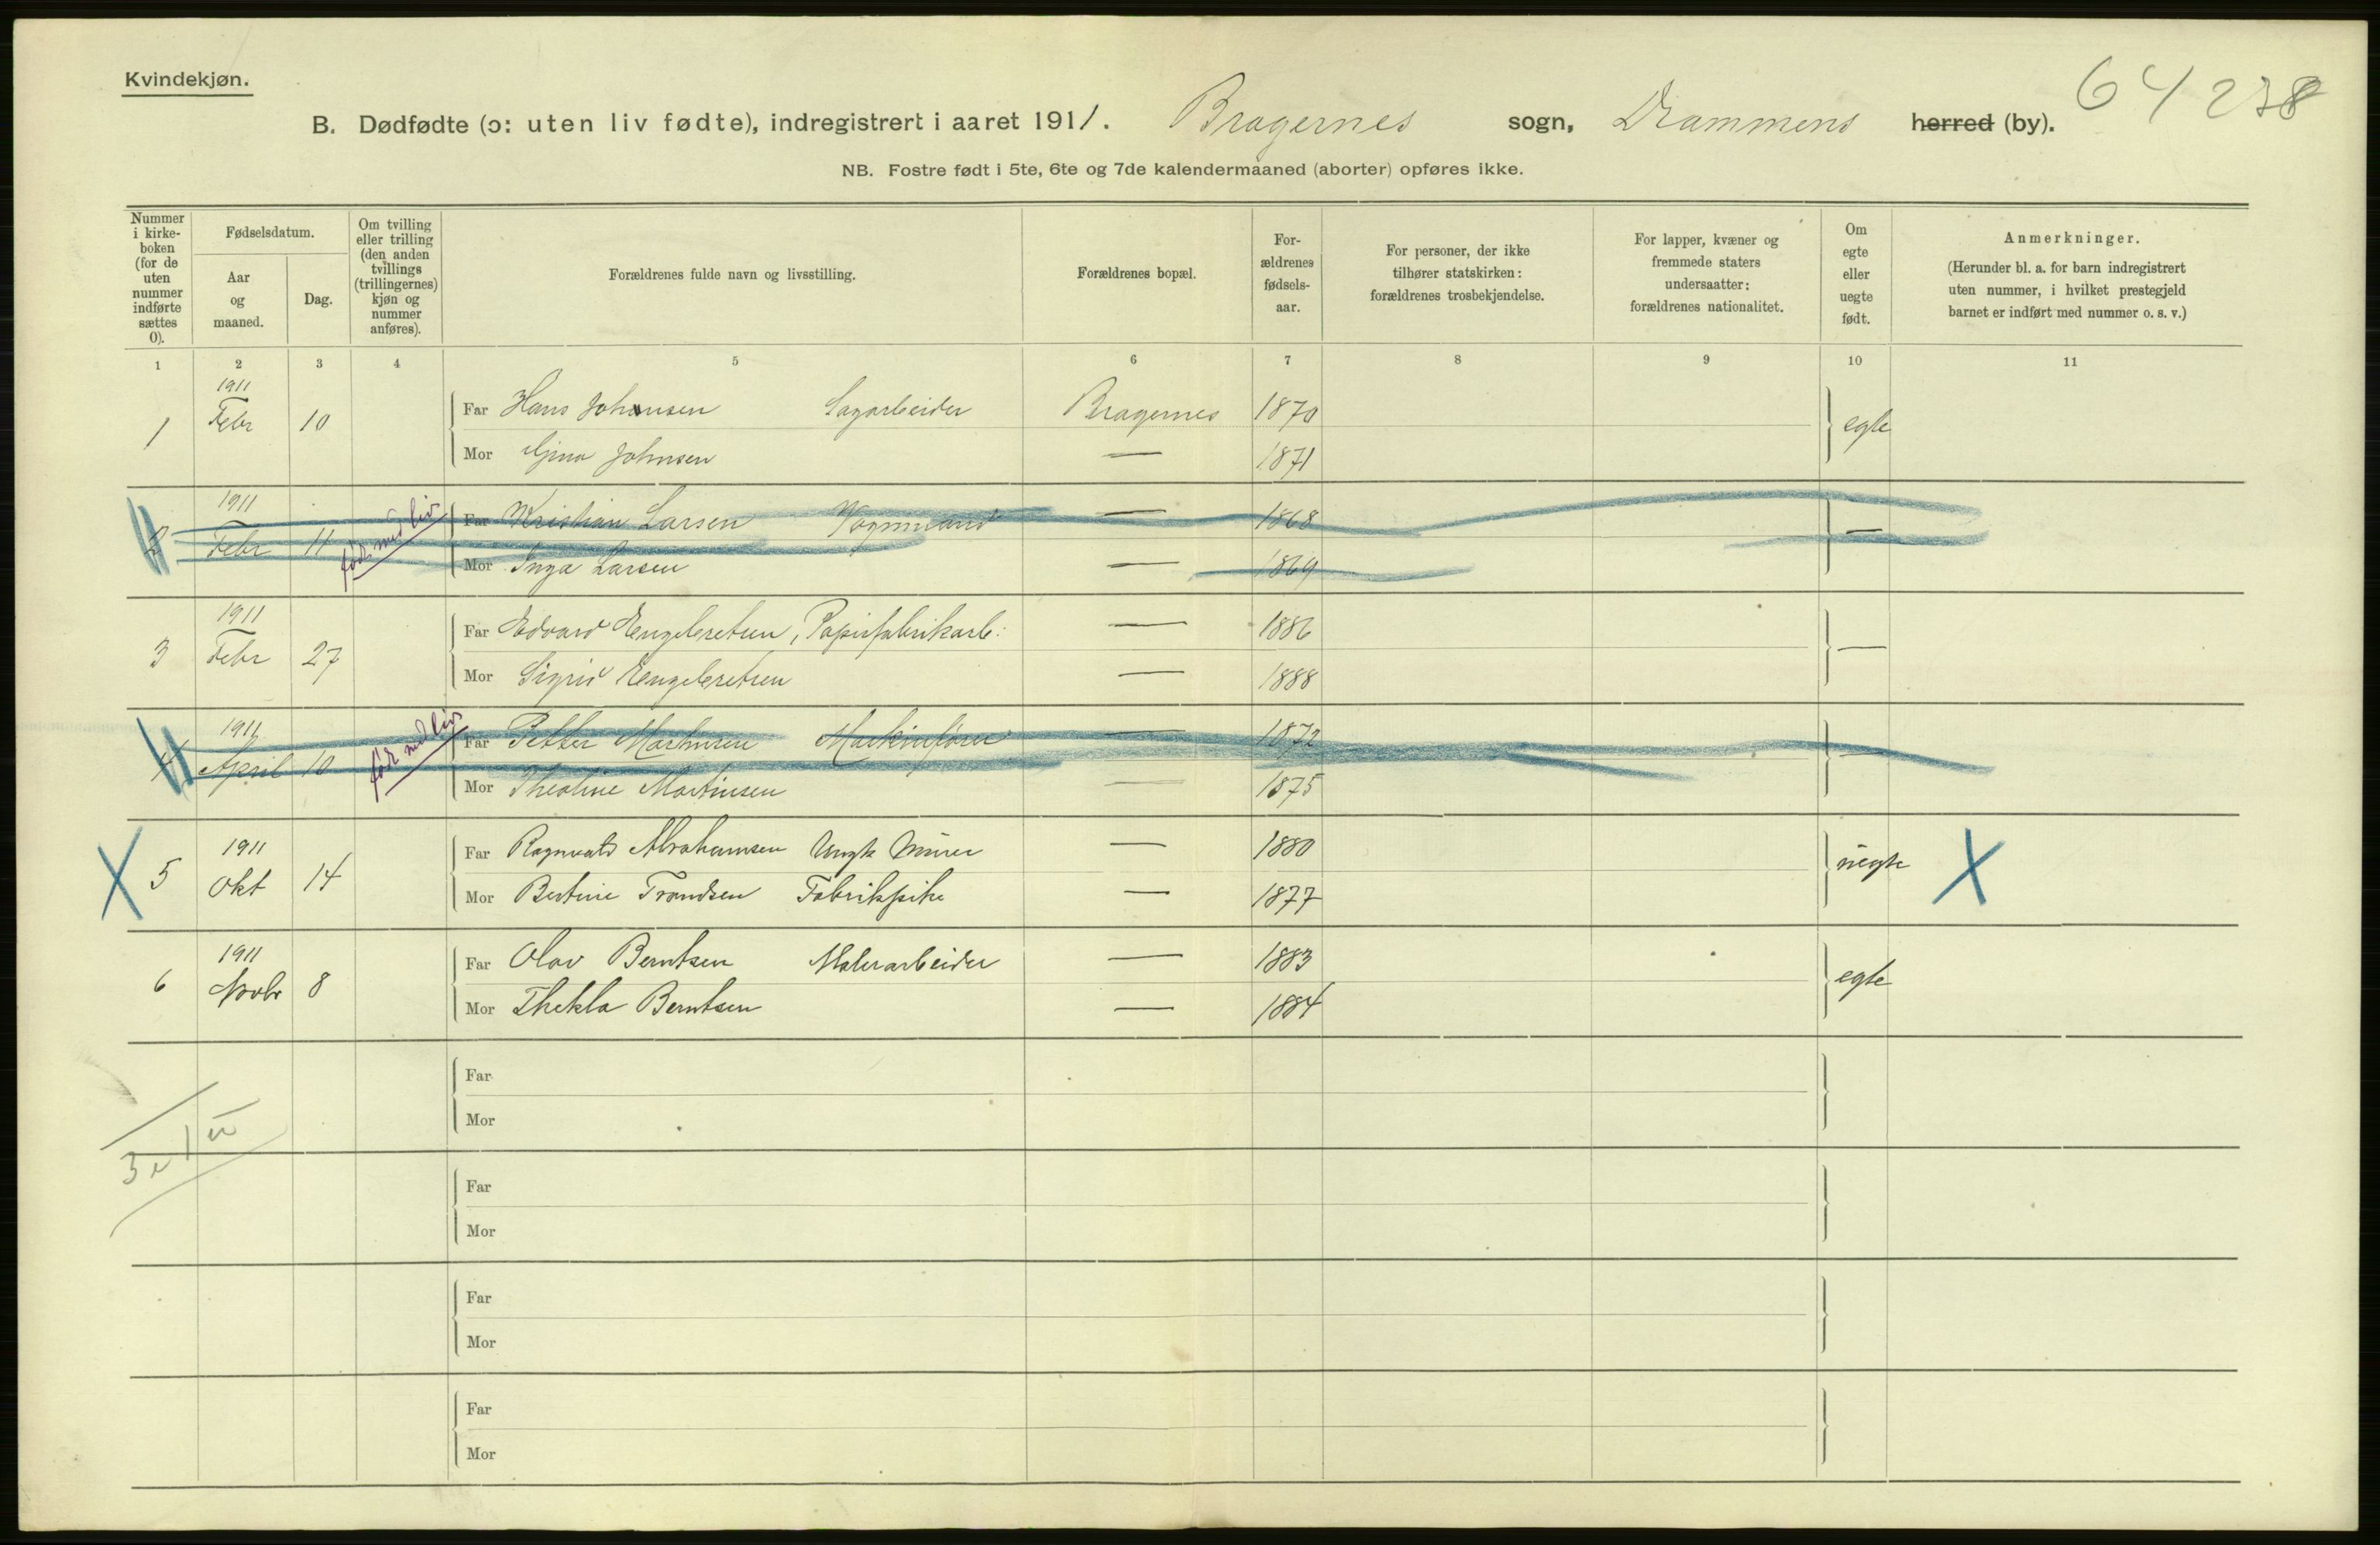 Kvindekjøn.
64 238
B. Dødfødte (ɔ: uten liv fødte), indregistrert i aaret 1911. Bragernes sogn, Drammens herred (by).
NB. Fostre født i 5te, 6te og 7de kalendermaaned (aborter) opføres ikke.
Nummer i kirke-boken (for de uten nummer indførte sættes 0).
Fødselsdatum.
Aar og maaned.
Dag.
Om tvilling eller trilling (den anden tvillings (trillingernes) kjøn og nummer anføres).
Forældrenes fulde navn og livsstilling.
Forældrenes bopæl.
For-ældrenes fødsels-aar.
For personer, der ikke tilhører statskirken: forældrenes trosbekjendelse.
For lapper, kvæner og fremmede staters undersaatter: forældrenes nationalitet.
Om egte eller uegte født.
Anmerkninger.
(Herunder bl. a. for barn indregistrert uten nummer, i hvilket prestegjeld barnet er indført med nummer o. s. v.)
1 2 3 4 5 6 7 8 9 10 11
1 1911 Febr 10 Far Hans Johnsen Sagarbeider Bragernes 1870 egte
Mor Gina Johnsen — 1871
2 1911 Febr 11 født med liv Far Kristian Larsen Vognmand — 1868 —
Mor Inga Larsen — 1869
3 1911 Febr 27 Far Edvard Engebretsen, Papirfabrikarb: — 1886 —
Mor Sigrid Engebretsen — 1888
4 1911 April 10 født med liv Far Petter Martinsen Maskinfører — 1872 —
Mor Theoline Martinsen — 1875
X 5 1911 Okt 14 Far Ragnvald Abrahamsen Ungk Murer — 1880 uegte X
Mor Bertine Trondsen Fabrikpike — 1877
6 1911 Novbr 8 Far Olav Berntsen Malerarbeider — 1883 egte
Mor Thekla Berntsen — 1884
Far
Mor
Far
Mor
Far
Mor
Far
Mor